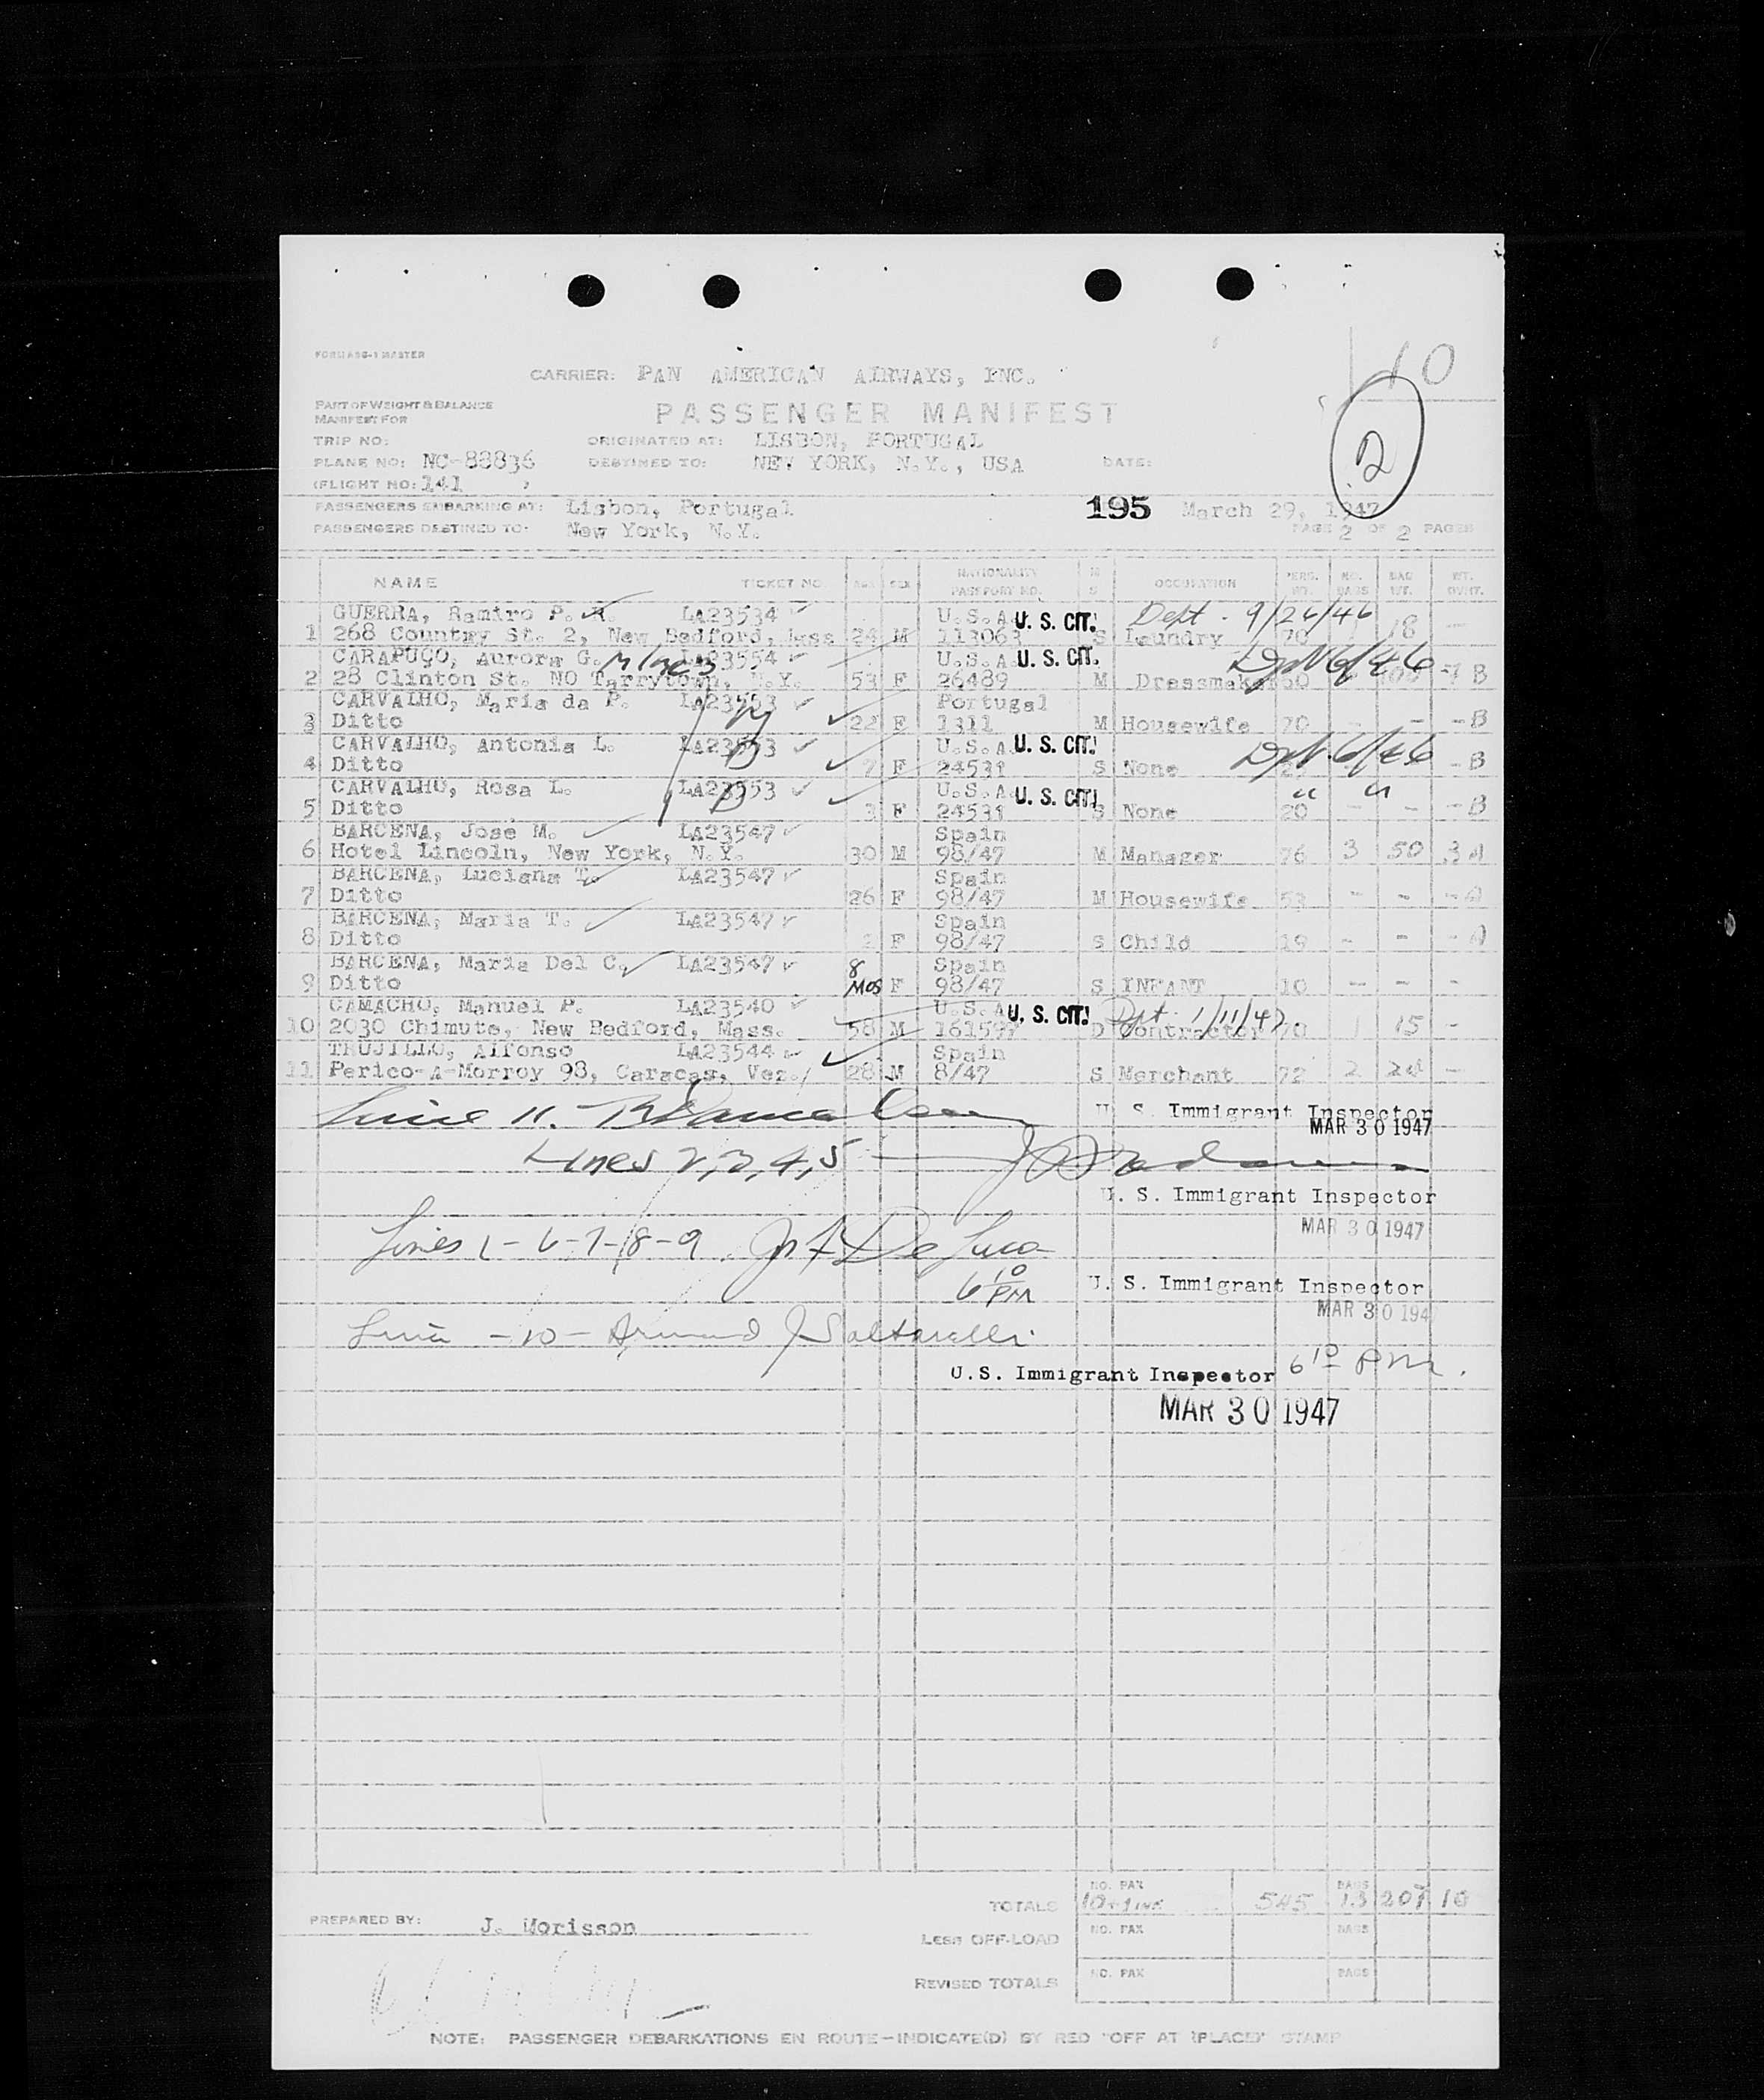 10
FORM ASG-1 MASTER
CARRIER: PAN AMERICAN AIRWAYS, INC.
PART OF WEIGHT & BALANCE
MANIFEST FOR
PASSENGER MANIFEST
2
TRIP NO:
ORIGINATED AT: LISBON, PORTUGAL
PLANE NO: NC-88836
DESTINED TO: NEW YORK, N.Y., USA
DATE:
(FLIGHT NO: 141 )
PASSENGERS EMBARKING AT: Lisbon, Portugal
195 March 29, 1947
PASSENGERS DESTINED TO: New York, N.Y.
PAGE 2 OF 2 PAGES
NAME TICKET NO AGE SEX NATIONALITY PASSPORT NO. M S OCCUPATION PERS. WT. NO. BAGS BAG WT. WT. OVWT.
GUERRA, Ramiro P. R. LA23534 U.S.A. U. S. CIT. Dept. 9/26/46
1 268 Country St. 2, New Bedford, Mass 24 M 113063 S Laundry 70 18 -
CARAPUÇO, Aurora G. LA23554 U.S.A. U. S. CIT. 6/46
2 28 Clinton St. NO Tarrytown, N.Y. 53 F 26489 M Dressmaker 60 B
CARVALHO, Maria da P. LA23553 Portugal
3 Ditto 22 F 1311 M Housewife 70 - - - B
CARVALHO, Antonia L. LA23553 U.S.A. U. S. CIT. 6/46
4 Ditto 7 F 24531 S None - B
CARVALHO, Rosa L. LA23553 U.S.A. U. S. CIT. " "
5 Ditto 3 F 24531 S None 20 - - - B
BARCENA, José M. LA23547 Spain
6 Hotel Lincoln, New York, N.Y. 30 M 98/47 M Manager 76 3 50 3 A
BARCENA, Luciana T. LA23547 Spain
7 Ditto 26 F 98/47 M Housewife 53 - - - A
BARCENA, Maria T. LA23547 Spain
8 Ditto 2 F 98/47 S Child 19 - - - A
BARCENA, Maria Del C. LA23547 8 Spain
9 Ditto Mos F 98/47 S INFANT 10 - - -
CAMACHO, Manuel P. LA23540 U.S.A. U. S. CIT. Dpt. 1/11/47
10 2030 Chimute, New Bedford, Mass. 58 M 161597 D Contractor 70 1 15 -
TRUJILLO, Alfonso LA23544 Spain
11 Perico-A-Morroy 98, Caracas, Vez. 28 M 8/47 S Merchant 72 2 24 -
Line 11.
U. S. Immigrant Inspector
MAR 30 1947
Lines 2, 3, 4, 5
U. S. Immigrant Inspector
MAR 30 1947
Lines 1-6-7-8-9. De Luca
6 10 PM
U. S. Immigrant Inspector
MAR 30 194
Line -10- Armand J Saltarelli
U.S. Immigrant Inspector 6 10 PM.
MAR 30 1947
TOTALS NO. PAX 10+1 INF 545 BAGS 13 207 10
PREPARED BY: J. Morisson
Less OFF-LOAD NO. PAX BAGS
REVISED TOTALS NO. PAX BAGS
NOTE: PASSENGER DEBARKATIONS EN ROUTE—INDICATE(D) BY RED "OFF AT (PLACE)" STAMP